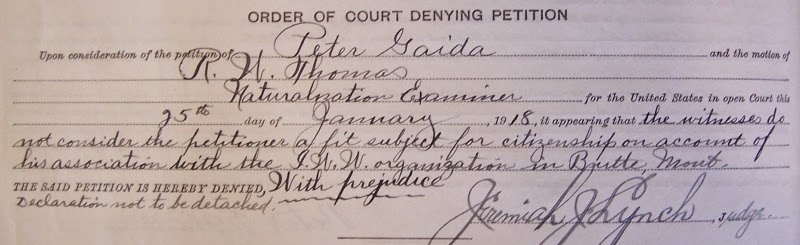 ORDER OF COURT DENYING PETITION
Upon consideration of the petition of Peter Gaida and the motion of
R. W. Thomas
Naturalization Examiner for the United States in open Court this
25th day of January, 1918, it appearing that the witnesses do
not consider the petitioner a fit subject for citizenship on account of
his association with the I.W.W. organization in Butte, Mont.
THE SAID PETITION IS HEREBY DENIED, With prejudice
Declaration not to be detached.
Jeremiah J Lynch, Judge.